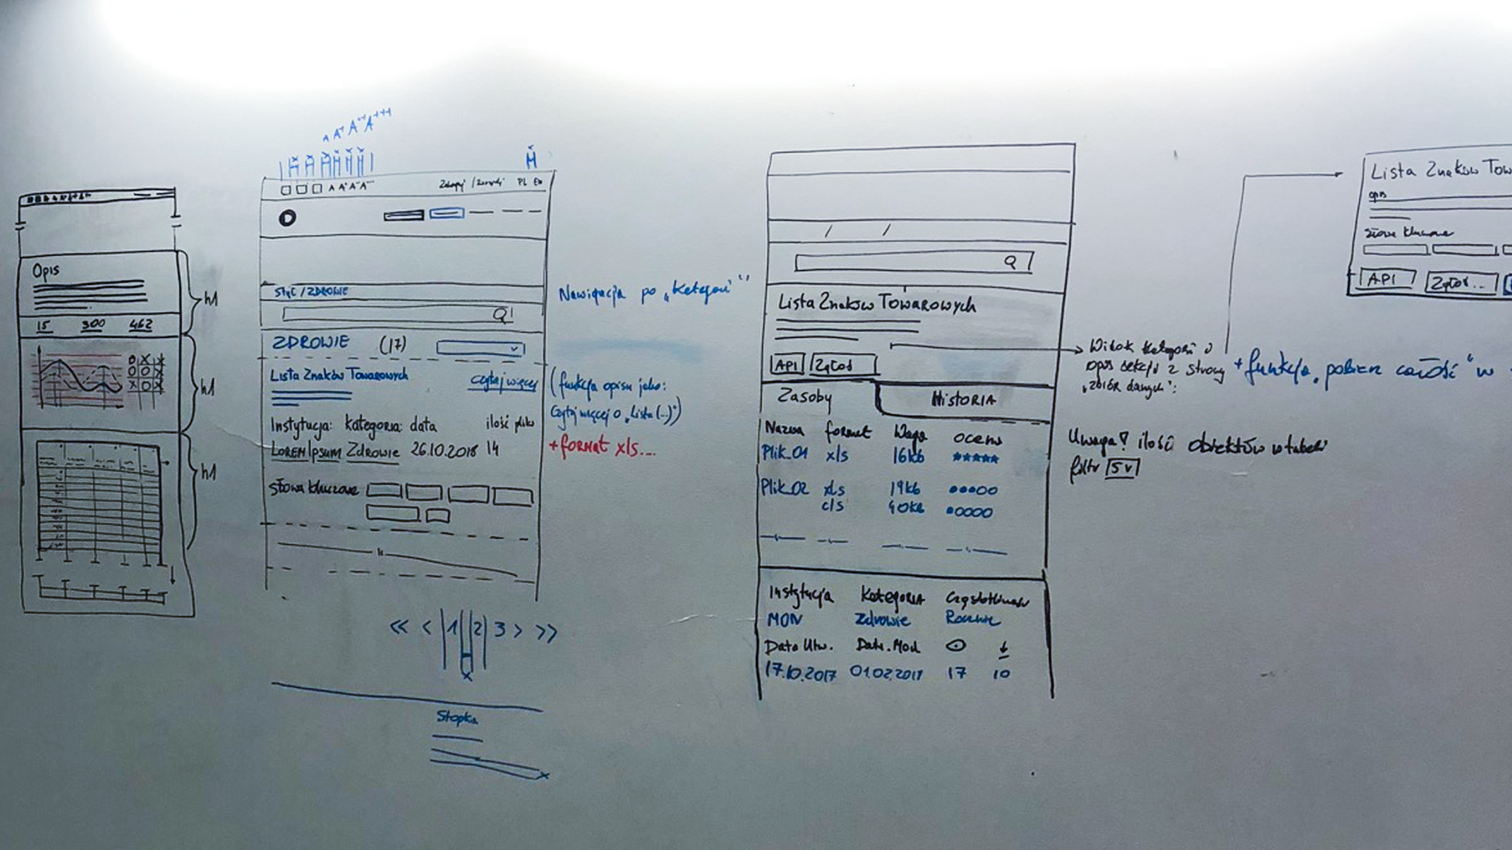 Opis
15 300 462
h1
h1
h1
A A+ A++ A+++
A A+ A++
PL EN
ZDROWIE
ZDROWIE (17)
Lista Znaków Towarowych
czytaj więcej
Instytucja: kategoria: data
LOREM Ipsum Zdrowie 26.10.2018 14
Słowa kluczowe
<< < 1 2 3 > >>
Stopka
Nawigacja po „kategorii"
(funkcja opisu jako:
Czytaj więcej o „Lista (...)")
+ format xls...
Lista Znaków Towarowych
API Zgłoś
Zasoby HISTORIA
Nazwa format Waga ocena
Plik_01 xls 16kb
Plik_02 xls 19kb
Instytucja KATEGORIA Częstotliwość
MON Zdrowie Rocznie
Data Utw. Data. Mod
17.10.2017 17 10
Widok kategorii i
opis sekcji z strony
„zbiór danych":
+ funkcja „pobierz całość" w
Uwaga! ilość obiektów w tabeli
filtr 5 v
Lista Znaków Tow
opis
Słowa kluczowe
API Zgłoś...